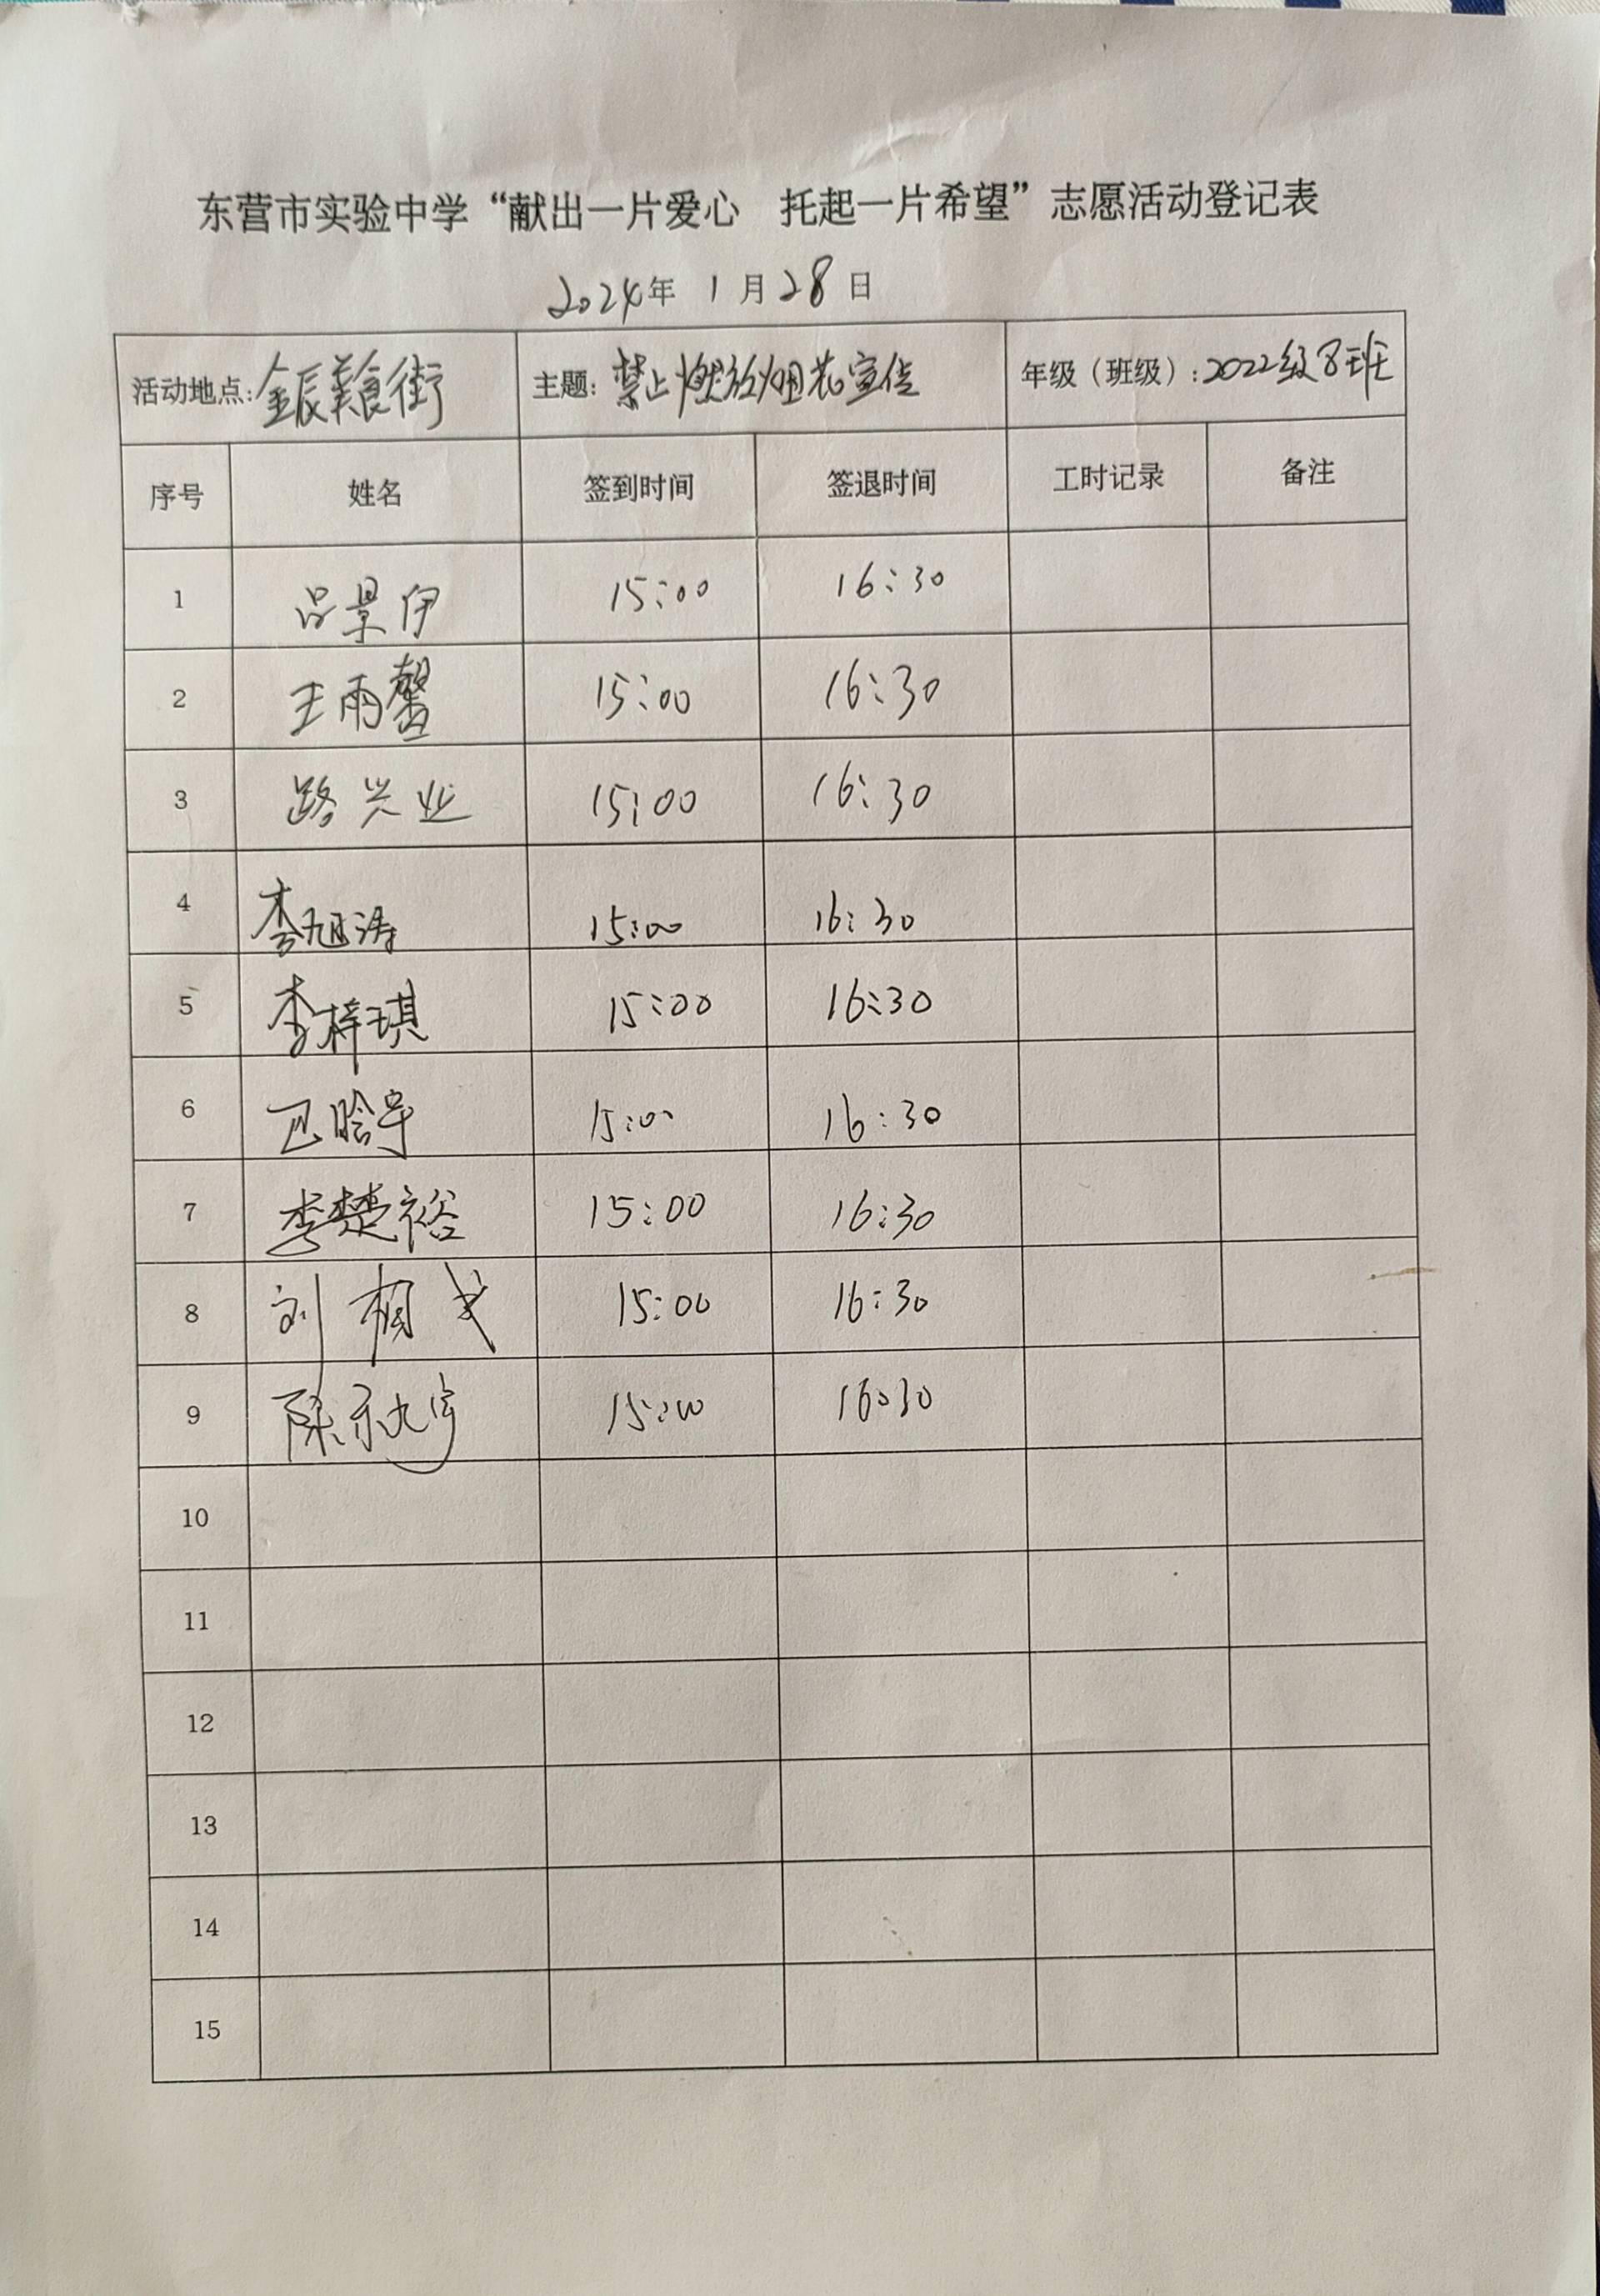 东营市实验中学“献出一片爱心 托起一片希望”志愿活动登记表
2024年 1月28日
活动地点:金辰美食街 主题:禁止燃放烟花宣传 年级（班级）:2022级8班
序号 姓名 签到时间 签退时间 工时记录 备注
1 吕景伊 15:00 16:30
2 王雨馨 15:00 16:30
3 路兴业 15:00 16:30
4 李旭涛 15:00 16:30
5 李梓琪 15:00 16:30
6 15:00 16:30
7 李楚裕 15:00 16:30
8 刘 15:00 16:30
9 陈 15:00 16:30
10
11
12
13
14
15